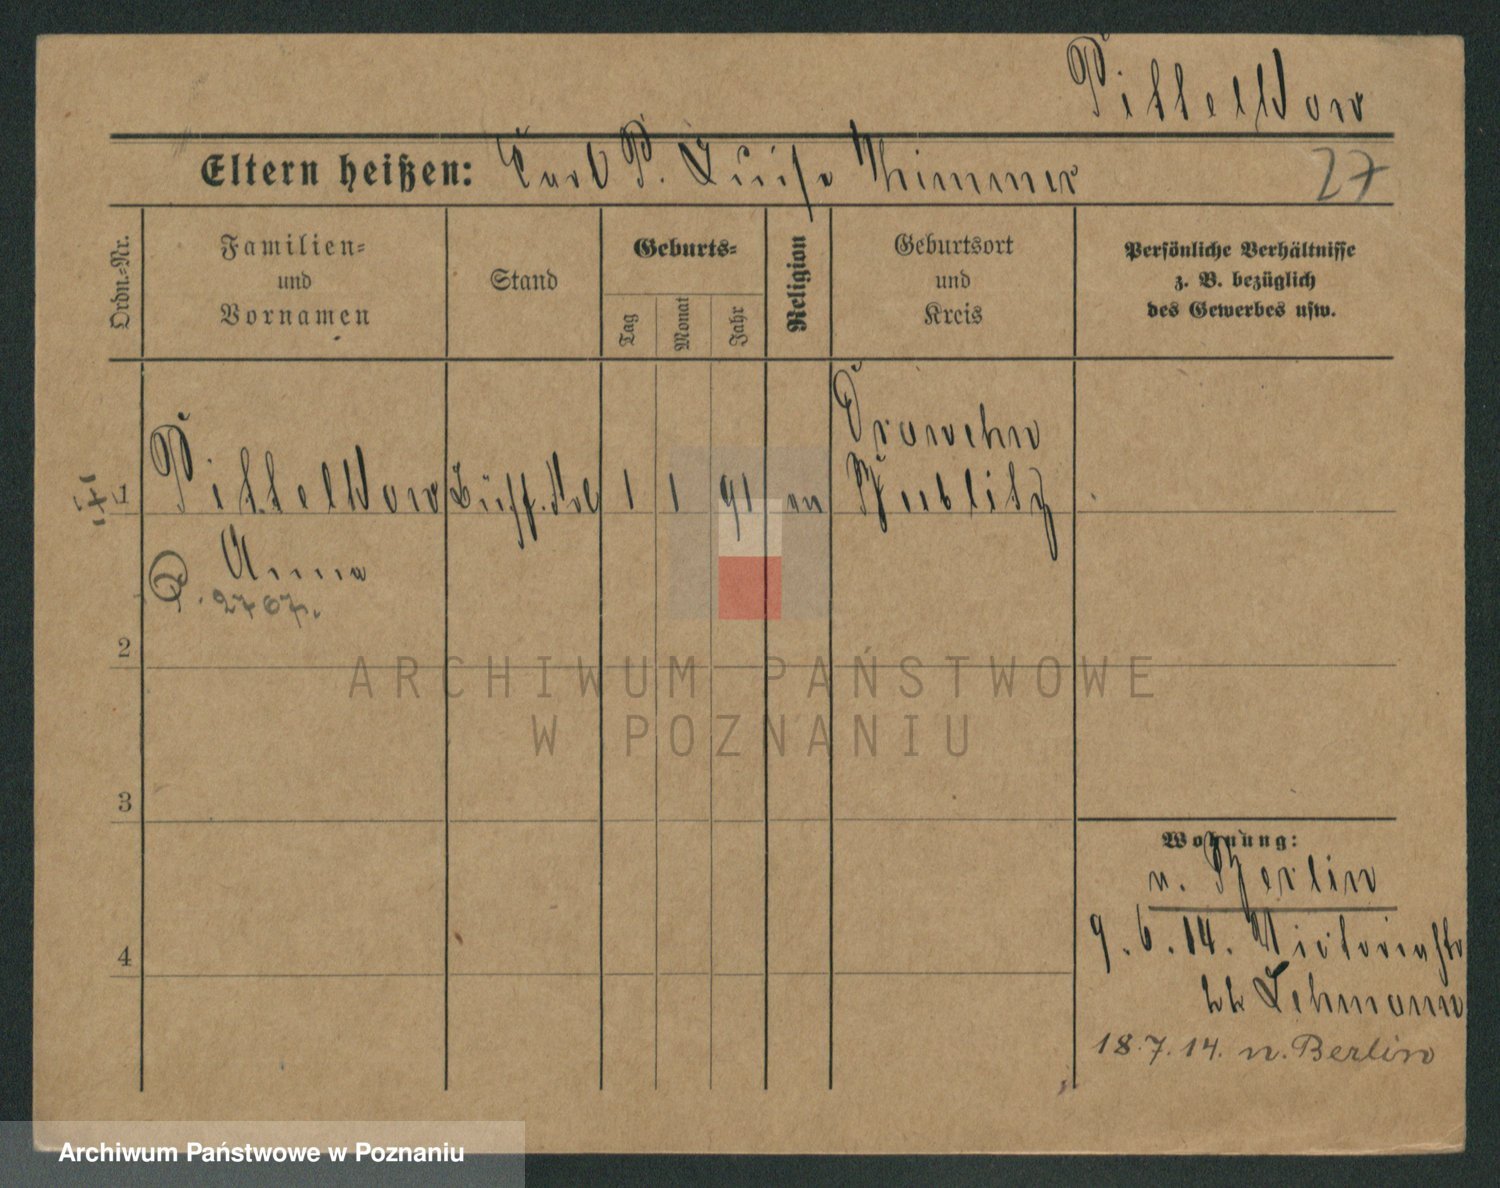 Pittelkow
Eltern heißen: Carl P. Luise Thimmer
27
Ordn.=Nr.
Familien=
und
Vornamen
Stand
Geburts=
Tag
Monat
Jahr
Religion
Geburtsort
und
Kreis
Persönliche Verhältnisse
z. B. bezüglich
des Gewerbes usw.
Drawehn
1 Pittelkow Büff. 1 1 91 ev Bublitz
Anna
2767.
2
3
4
Wohnung:
n. Berlin
9.6.14. Victoriastr
Lehmann
18.7.14. n. Berlin
ARCHIWUM PAŃSTWOWE
W POZNANIU
Archiwum Państwowe w Poznaniu